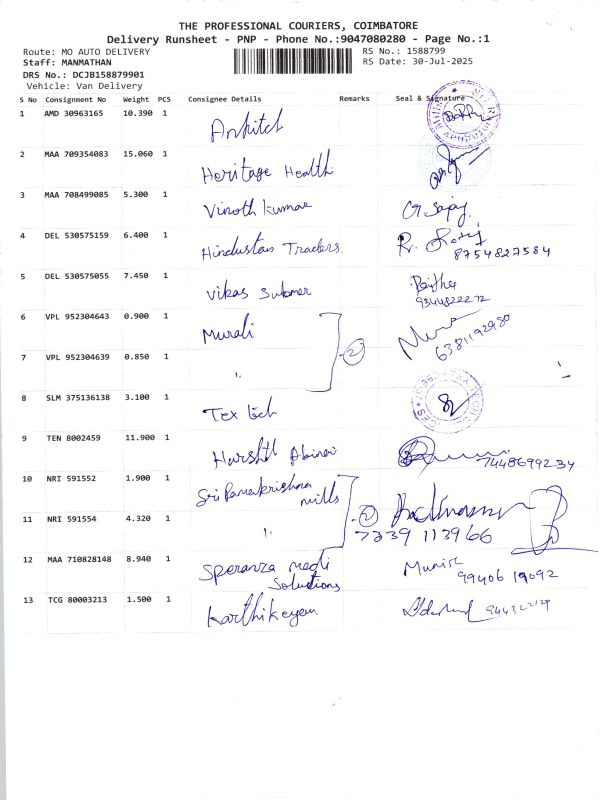 THE PROFESSIONAL COURIERS, COIMBATORE
Delivery Runsheet - PNP - Phone No.:9047080280 - Page No.:1
Route: MO AUTO DELIVERY RS No.: 1588799
Staff: MANMATHAN RS Date: 30-Jul-2025
DRS No.: DCJB158879901
Vehicle: Van Delivery
S No Consignment No Weight PCS Consignee Details Remarks Seal & Signature
1 AMD 30963165 10.390 1
2 MAA 709354083 15.060 1 Heritage Health
3 MAA 708499085 5.300 1 Vinoth kumar G. Sajay
4 DEL 530575159 6.400 1 Hindustan Traders R.
8754827584
5 DEL 530575055 7.450 1 Vikas
9344822272
6 VPL 952304643 0.900 1 Murali
6381192980
7 VPL 952304639 0.850 1 " 2
8 SLM 375136138 3.100 1 Tex tech
9 TEN 8002459 11.900 1 Harshit
7448699234
10 NRI 591552 1.900 1 Sri Ramakrishna
mills
11 NRI 591554 4.320 1 " 2
7339 113966
12 MAA 710828148 8.940 1 Speranza medi
Solutions
99406 19092
13 TCG 80003213 1.500 1 Karthikeyan